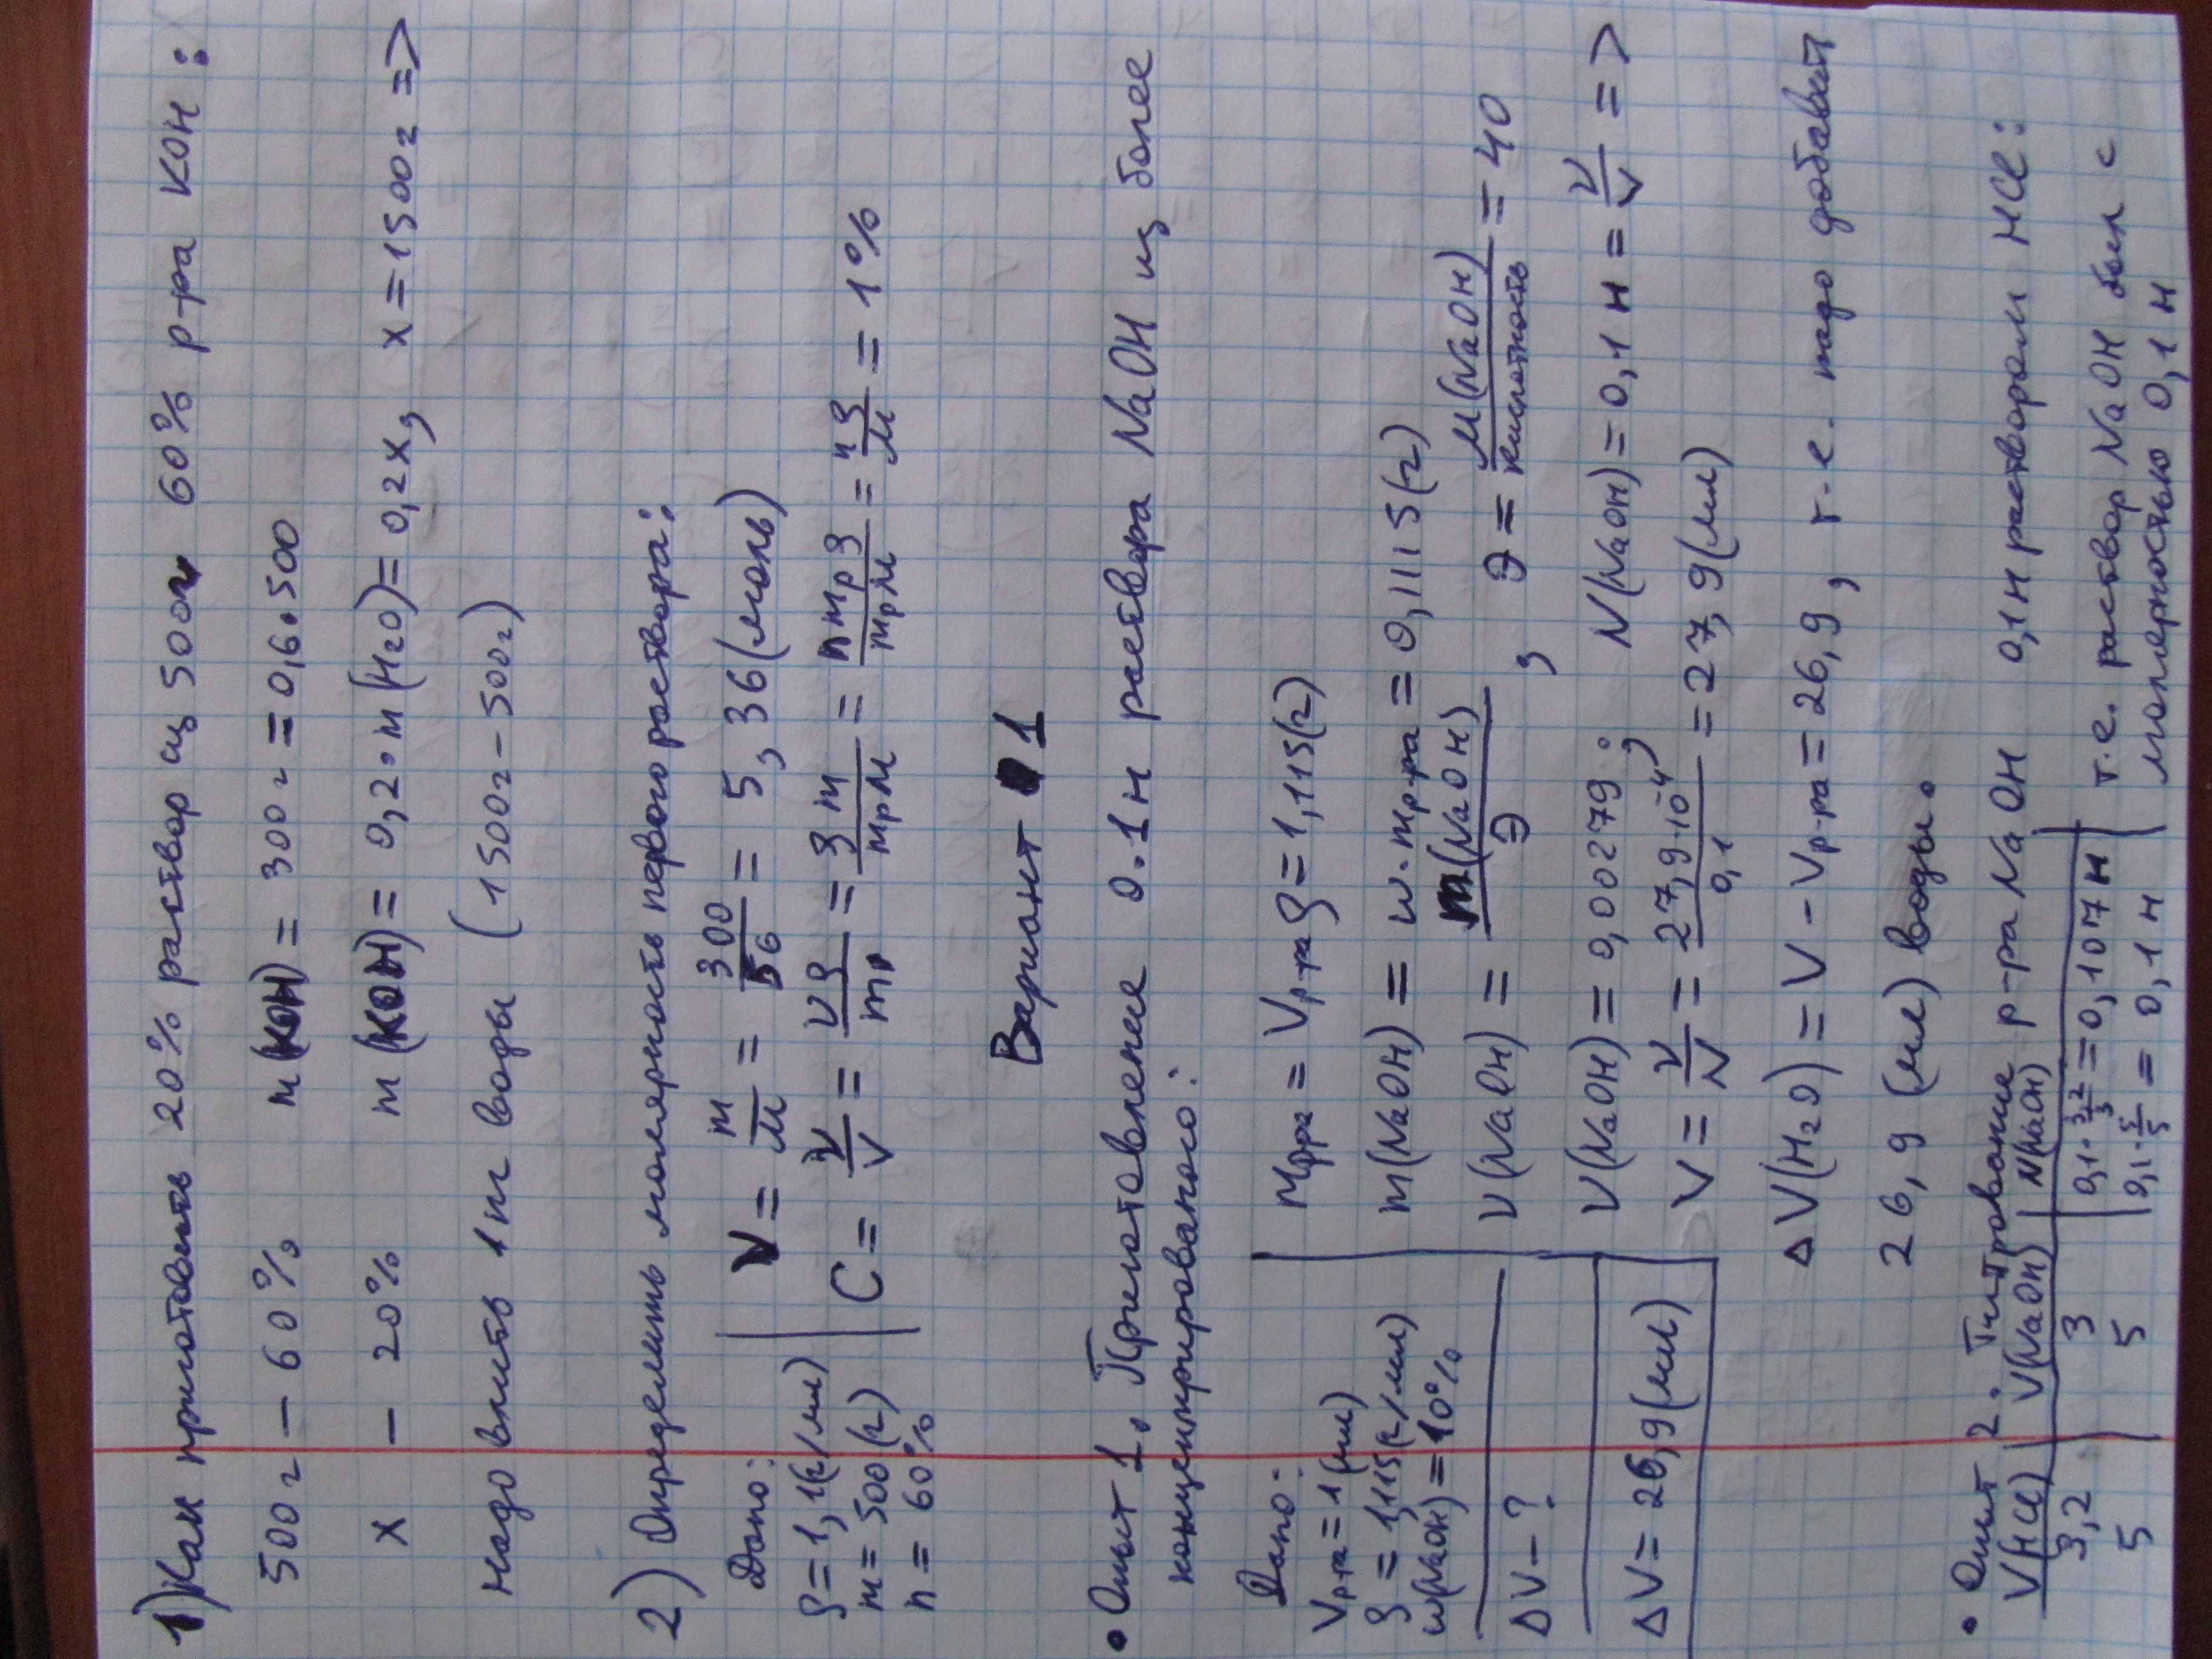 1) Как приготовить 20% раствор из 500г 60% р-ра KOH:
500г – 60% m(KOH) = 300г = 0,6·500
x – 20% m(KOH) = 0,2·m(H2O) = 0,2x, x = 1500г =>
надо влить 1кг воды (1500г – 500г)
2) Определить молярность первого раствора:
Дано:
ρ = 1,1(г/мл)
m = 500(г)
n = 60%
ν = m/M = 300/56 = 5,36(моль)
C = ν/V = νρ/mр = ρm/mрM = nmрρ/mрM = nρ/M = 1%
Вариант 1
• Опыт 1. Приготовление 0.1н раствора NaOH из более
концентрированого:
Дано:
Vр-ра = 1(мл)
ρ = 1,115(г/мл)
w(NaOH) = 10%
ΔV – ?
ΔV = 26,9(мл)
mрра = Vр-ра ρ = 1,115(г)
m(NaOH) = w·mр-ра = 0,1115(г)
ν(NaOH) = m(NaOH)/Э, Э = M(NaOH)/кислотность = 40
ν(NaOH) = 0,00279; N(NaOH) = 0,1н = ν/V =>
V = ν/N = 27,9·10⁻⁴/0,1 = 27,9(мл)
ΔV(H2O) = V – Vр-ра = 26,9, т.е. надо добавить
26,9 (мл) воды.
• Опыт 2. Титрование р-ра NaOH 0,1н раствором HCl:
V(HCl) V(NaOH) N(NaOH)
3,2 3 0,1·3,2/3 = 0,107н
5 5 0,1·5/5 = 0,1н
т.е. раствор NaOH был с
молярностью 0,1н